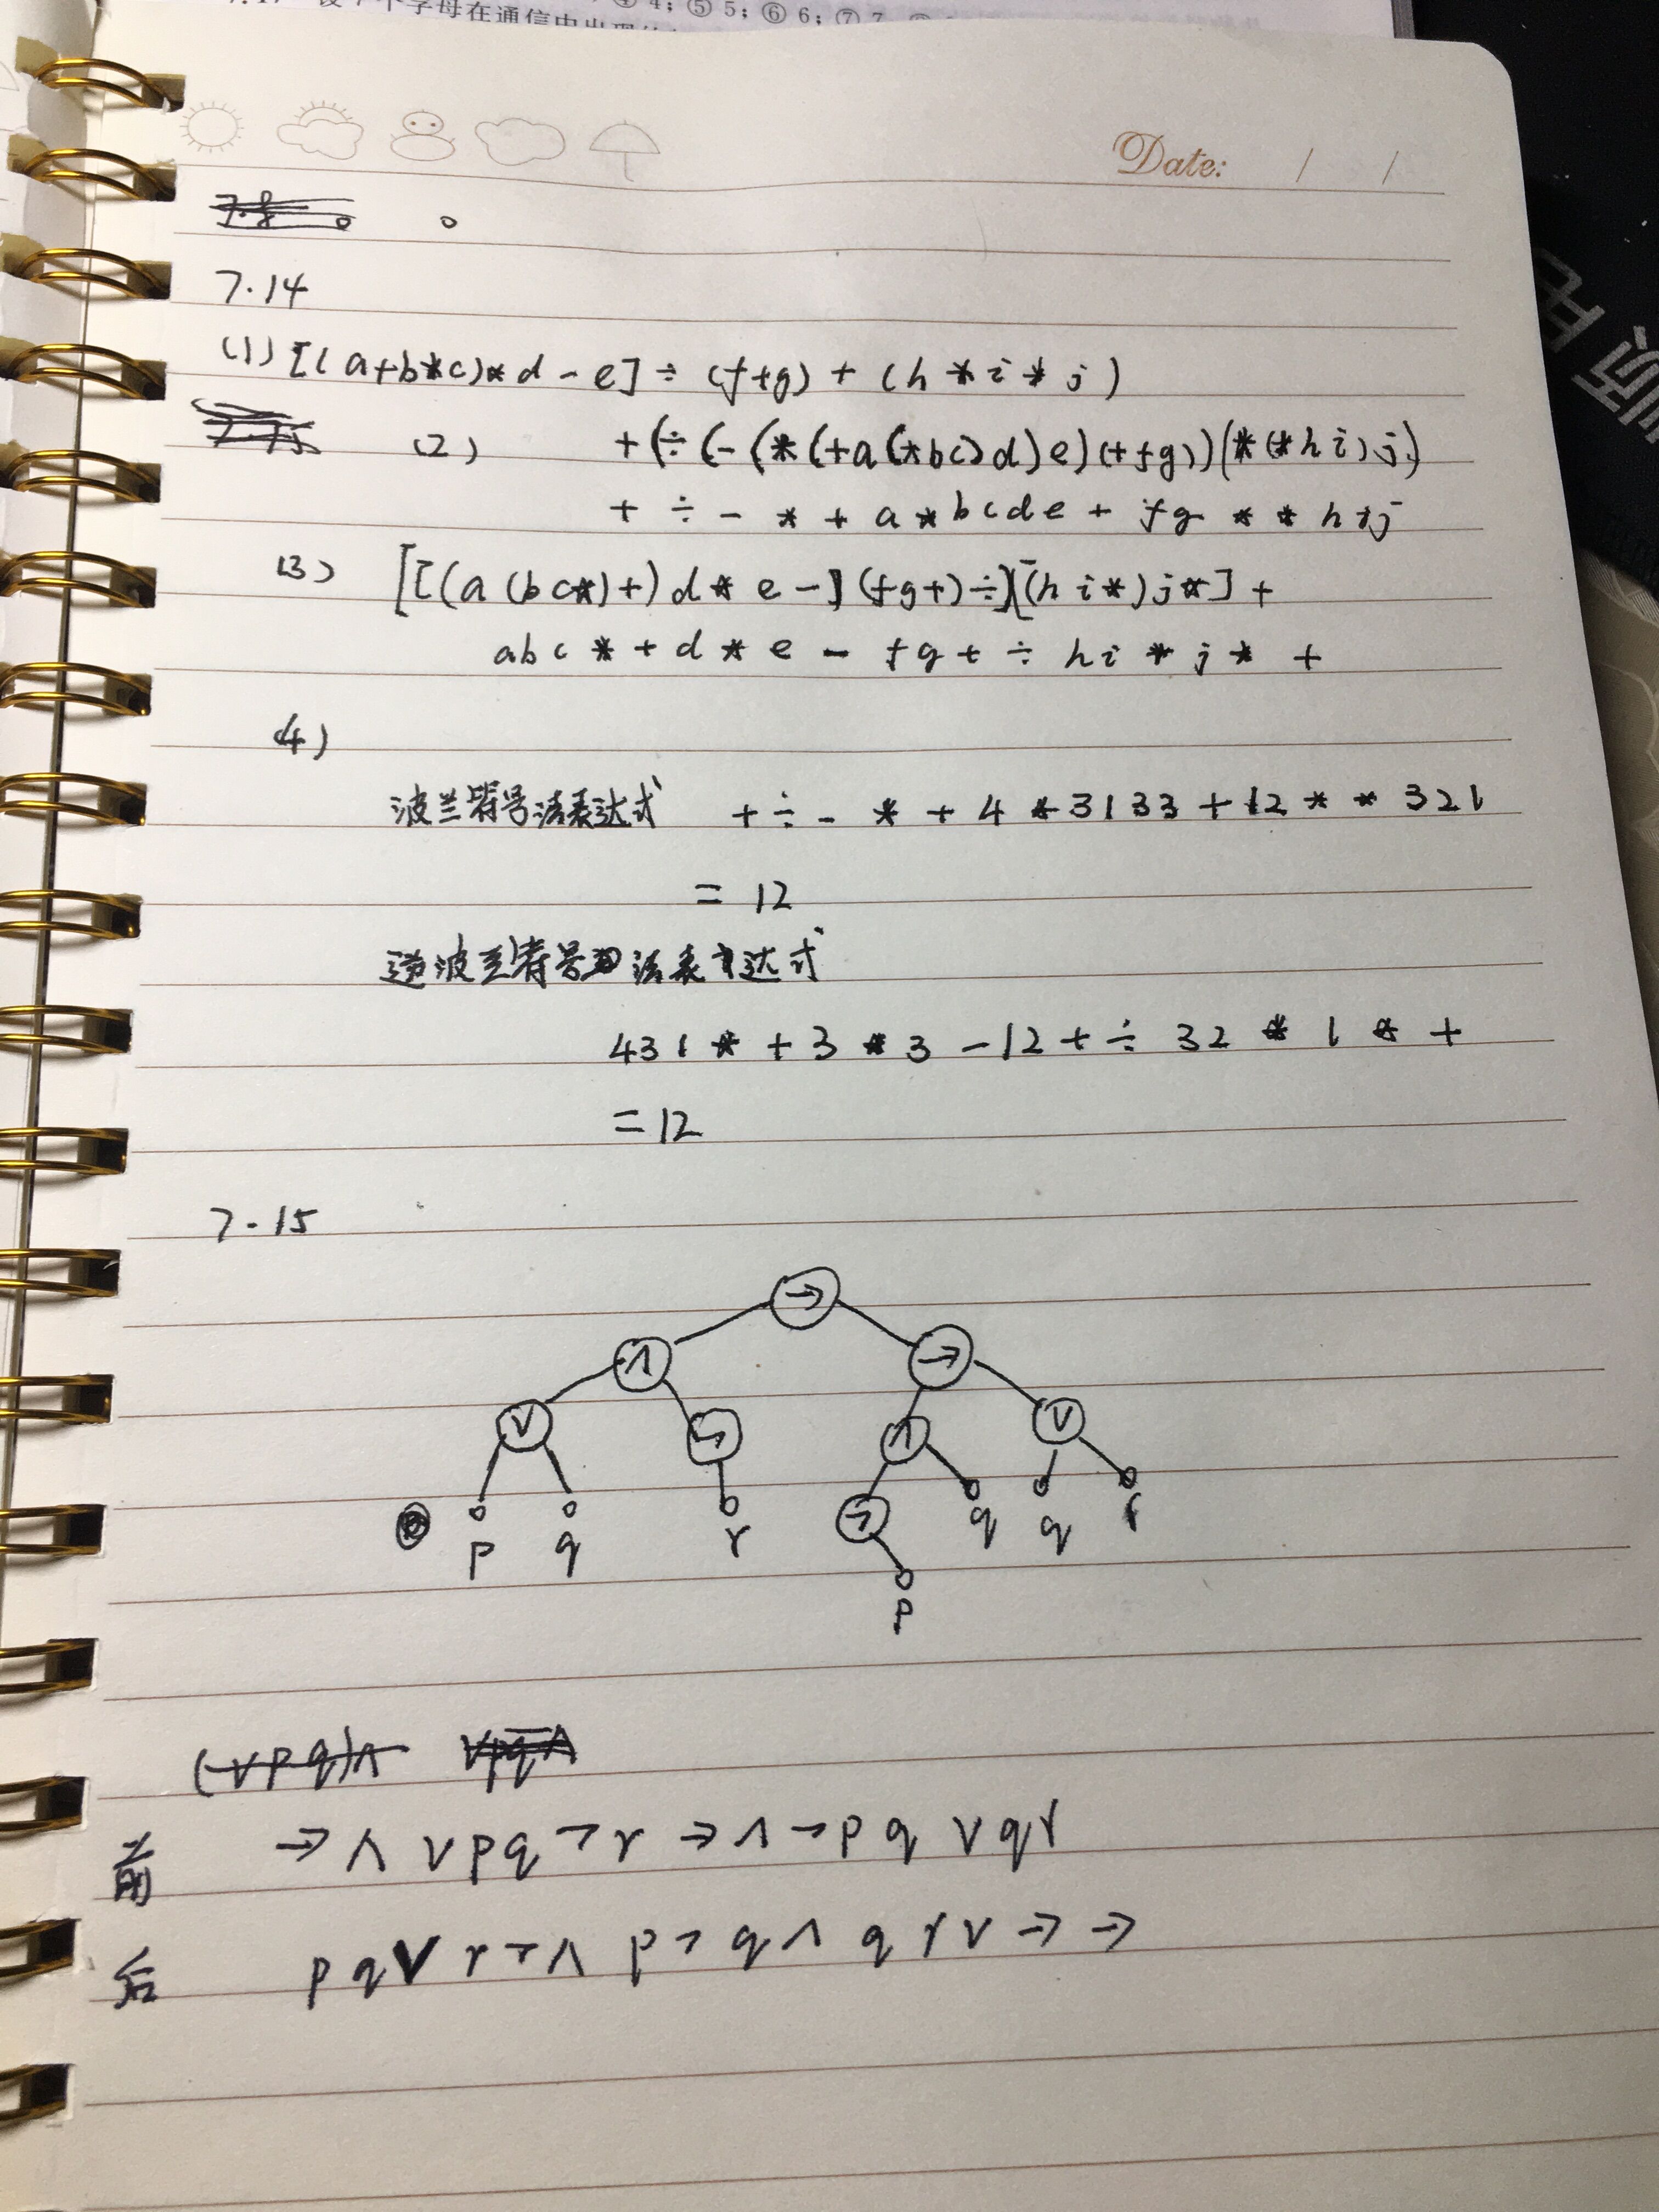 ④ 4; ⑤ 5; ⑥ 6; ⑦ 7
个字母在通信中出现
Date: / /
7.14
(1) [(a+b*c)*d-e]÷(f+g)+(h*i*j)
(2) +(÷(-(*(+a(*bc)d)e)(+fg))(*(*hi)j)
+÷-*+a*bcde+fg**hij
(3) [[(a(bc*)+)d*e-](fg+)÷][(hi*)j*]+
abc*+d*e-fg+÷hi*j*+
(4)
波兰符号法表达式 +÷-*+4*3133+12**321
=12
逆波兰符号法表达式
431*+3*3-12+÷32*1*+
=12
7.15
→
∧ →
∨ ¬ ∧ ∨
p q r ¬ q q r
p
(∨pq)∧ ∨pq∧
前 →∧∨pq¬r→∧¬pq∨qr
后 pq∨r¬∧p¬q∧qr∨→→